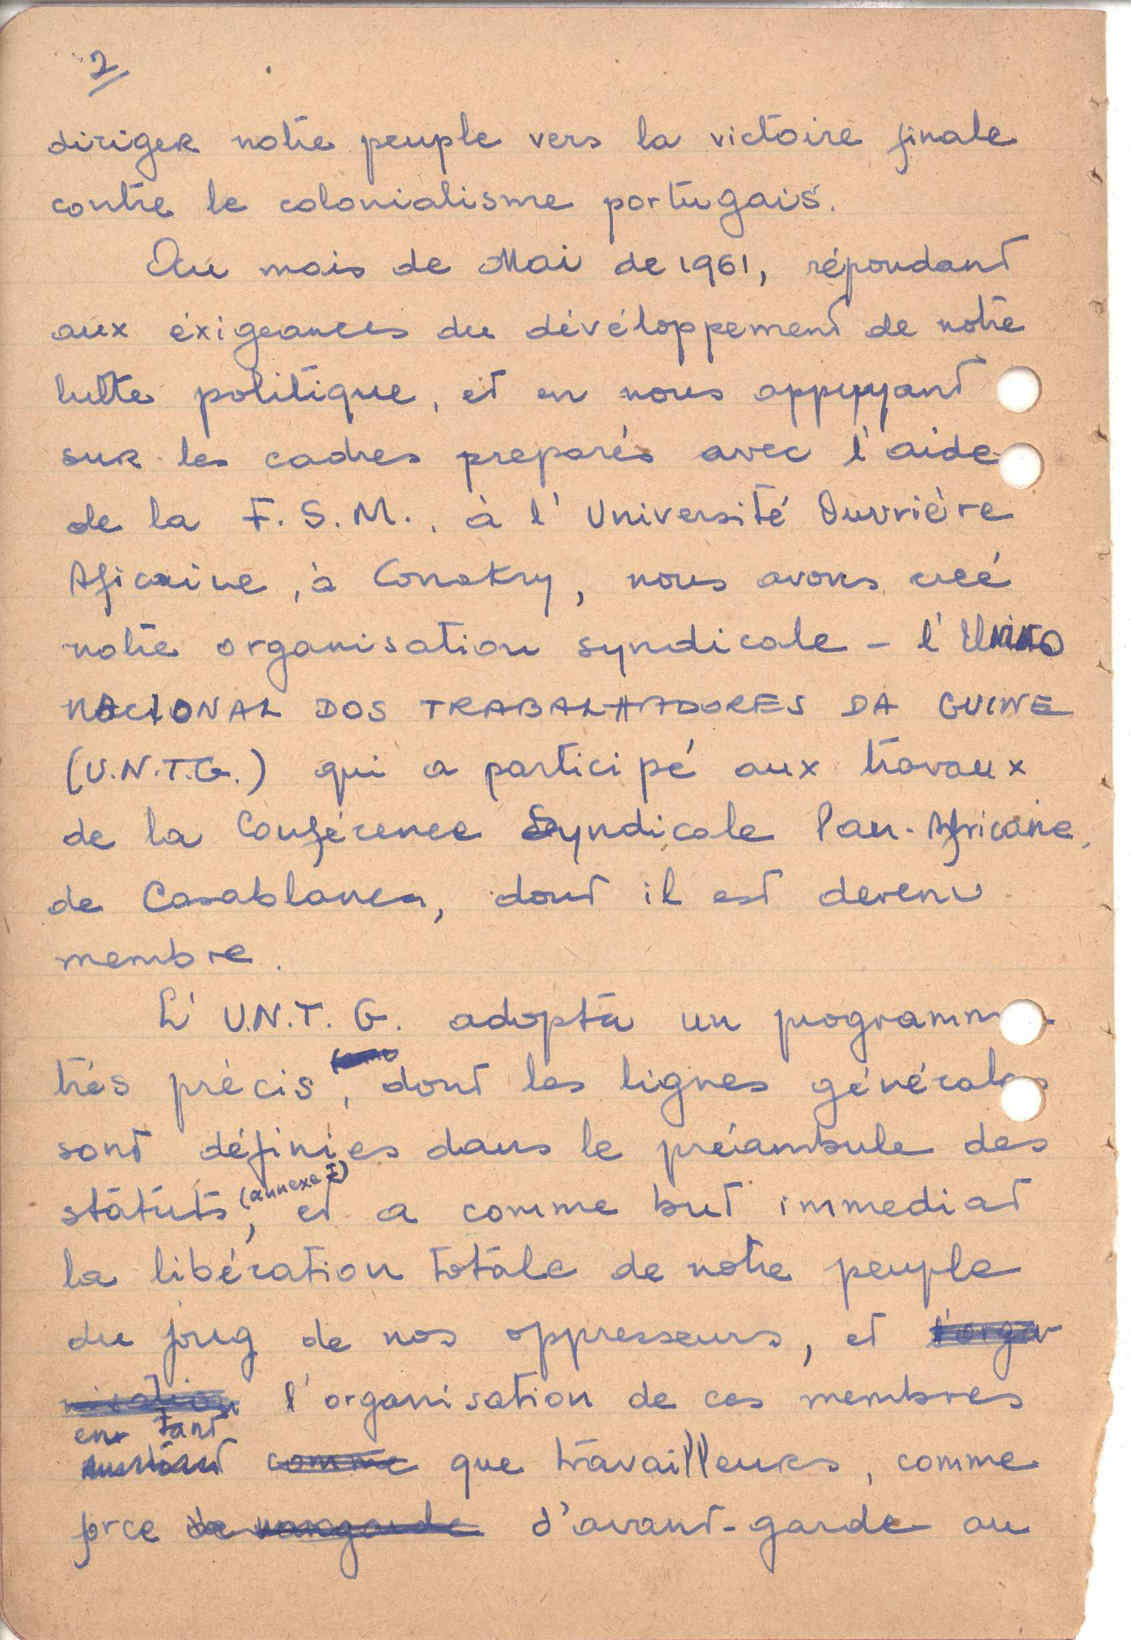 2
diriger notre peuple vers la victoire finale
contre le colonialisme portugais.
Au mois de Mai de 1961, répondant
aux éxigeances du dévéloppement de notre
lutte politique, et en nous appuyant
sur les cadres preparés avec l'aide
de la F.S.M., à l'Université Ouvrière
Africaine, à Conakry, nous avons créé
notre organisation syndicale - l'União
NACIONAL DOS TRABALHADORES DA GUINE
(U.N.T.G.) qui a participé aux travaux
de la Conférence Syndicale Pan-Africaine,
de Casablanca, dont il est devenu
membre.
L'U.N.T.G. adopta un programme
trés précis, dont les lignes générales
sont définies dans le préambule des
(annexe I)
statuts, et a comme but immediat
la libération totale de notre peuple
du joug de nos oppresseurs, et l'orga
nisation l'organisation de ces membres
en tant
comme que travailleurs, comme
force de d'avant-garde au